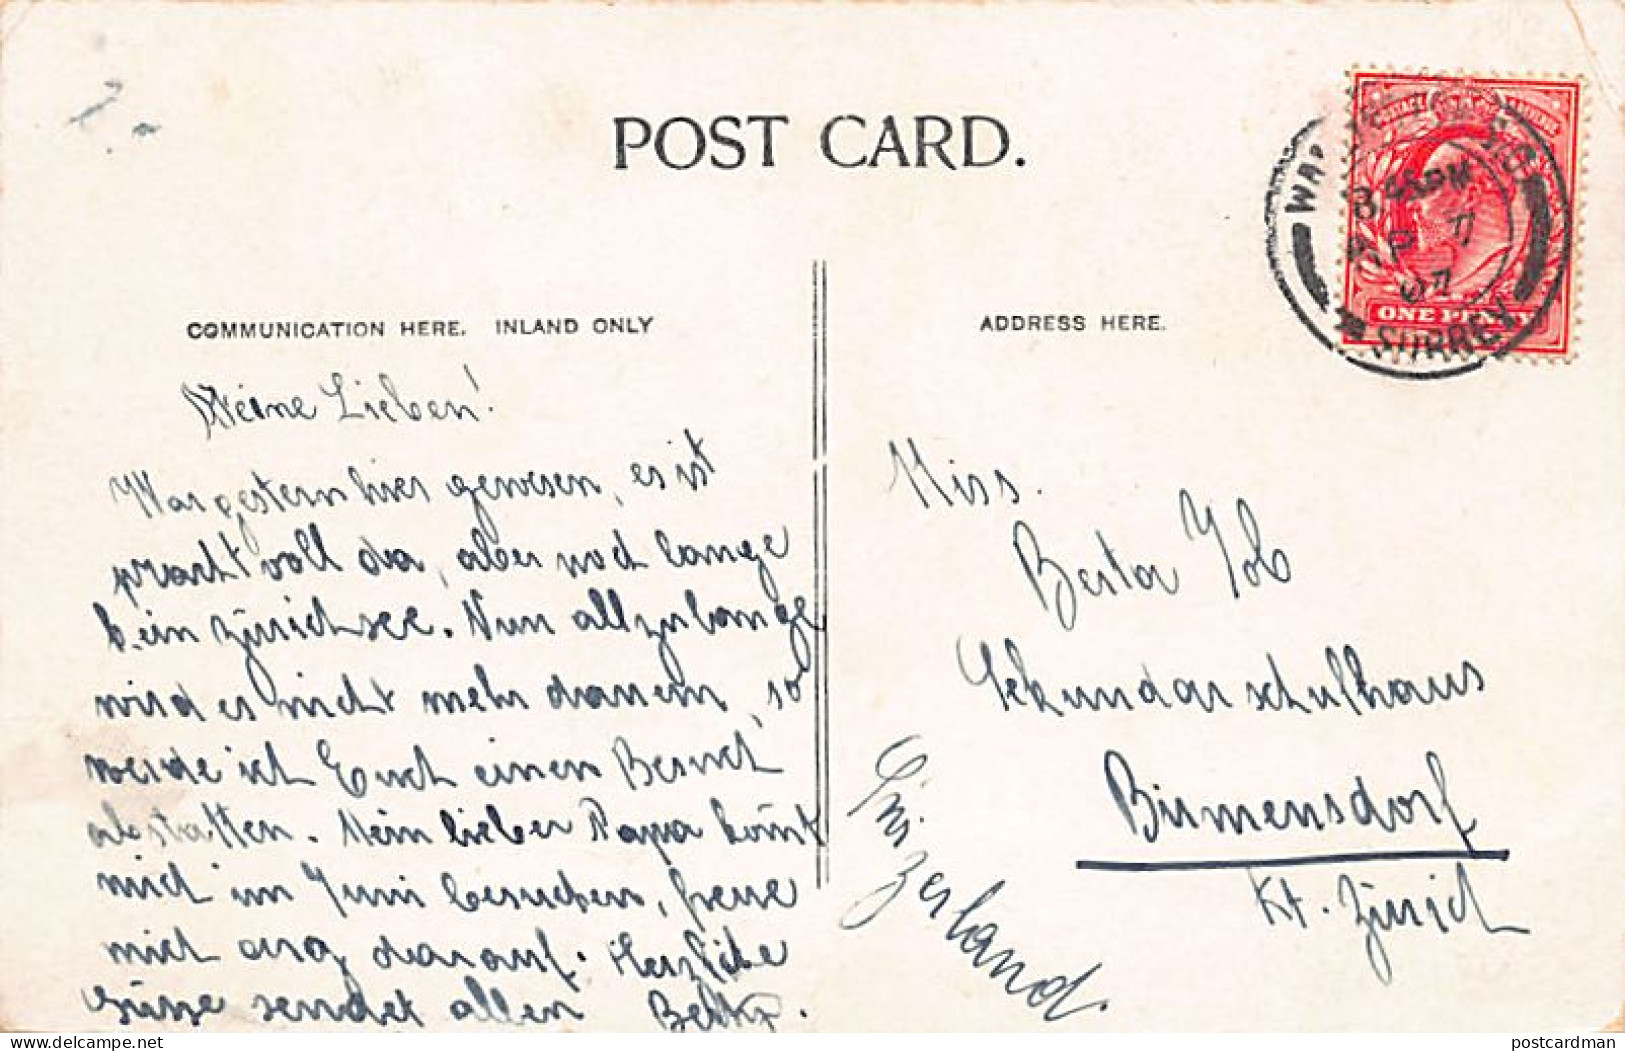 POST CARD.
COMMUNICATION HERE. INLAND ONLY
ADDRESS HERE.
8 45PM
AP 7
07
SURREY
ONE PENNY
Meine Lieben!
War gestern hier gewesen, es ist
pracht voll da, aber noch lange
kein Zürichsee. Nun allzulange
wird es nicht mehr dauern, so
werde ich Euch einen Besuch
abstatten. Mein lieber Papa kömt
mich im Juni besuchen, freue
mich arg darauf. Herzliche
Grüsse sendet allen
Miss.
Berta Job
Sekundarschulhaus
Birmensdorf
Kt. Zürich
postcardman